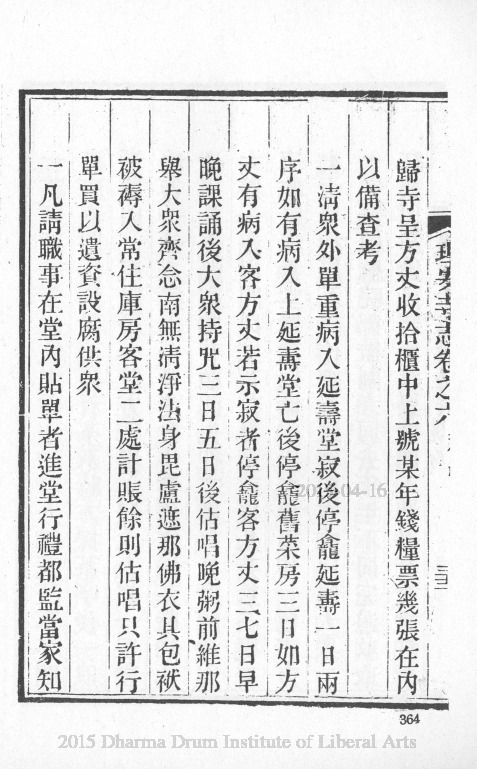 理安寺志卷之六
歸寺呈方丈收拾櫃中上號某年錢糧票幾張在內
以備查考
一清衆外單重病入延壽堂寂後停龕延壽一日兩
序如有病入上延壽堂亡後停龕舊菜房三日如方
丈有病入客方丈若示寂者停龕客方丈三七日早
晚課誦後大衆持咒三日五日後估唱晚粥前維那
舉大衆齊念南無清淨法身毘盧遮那佛衣具包袱
被褥入常住庫房客堂二處計賬餘則估唱只許行
單買以遺資設腐供衆
一凡請職事在堂內貼單者進堂行禮都監當家知
364
2015 Dharma Drum Institute of Liberal Arts